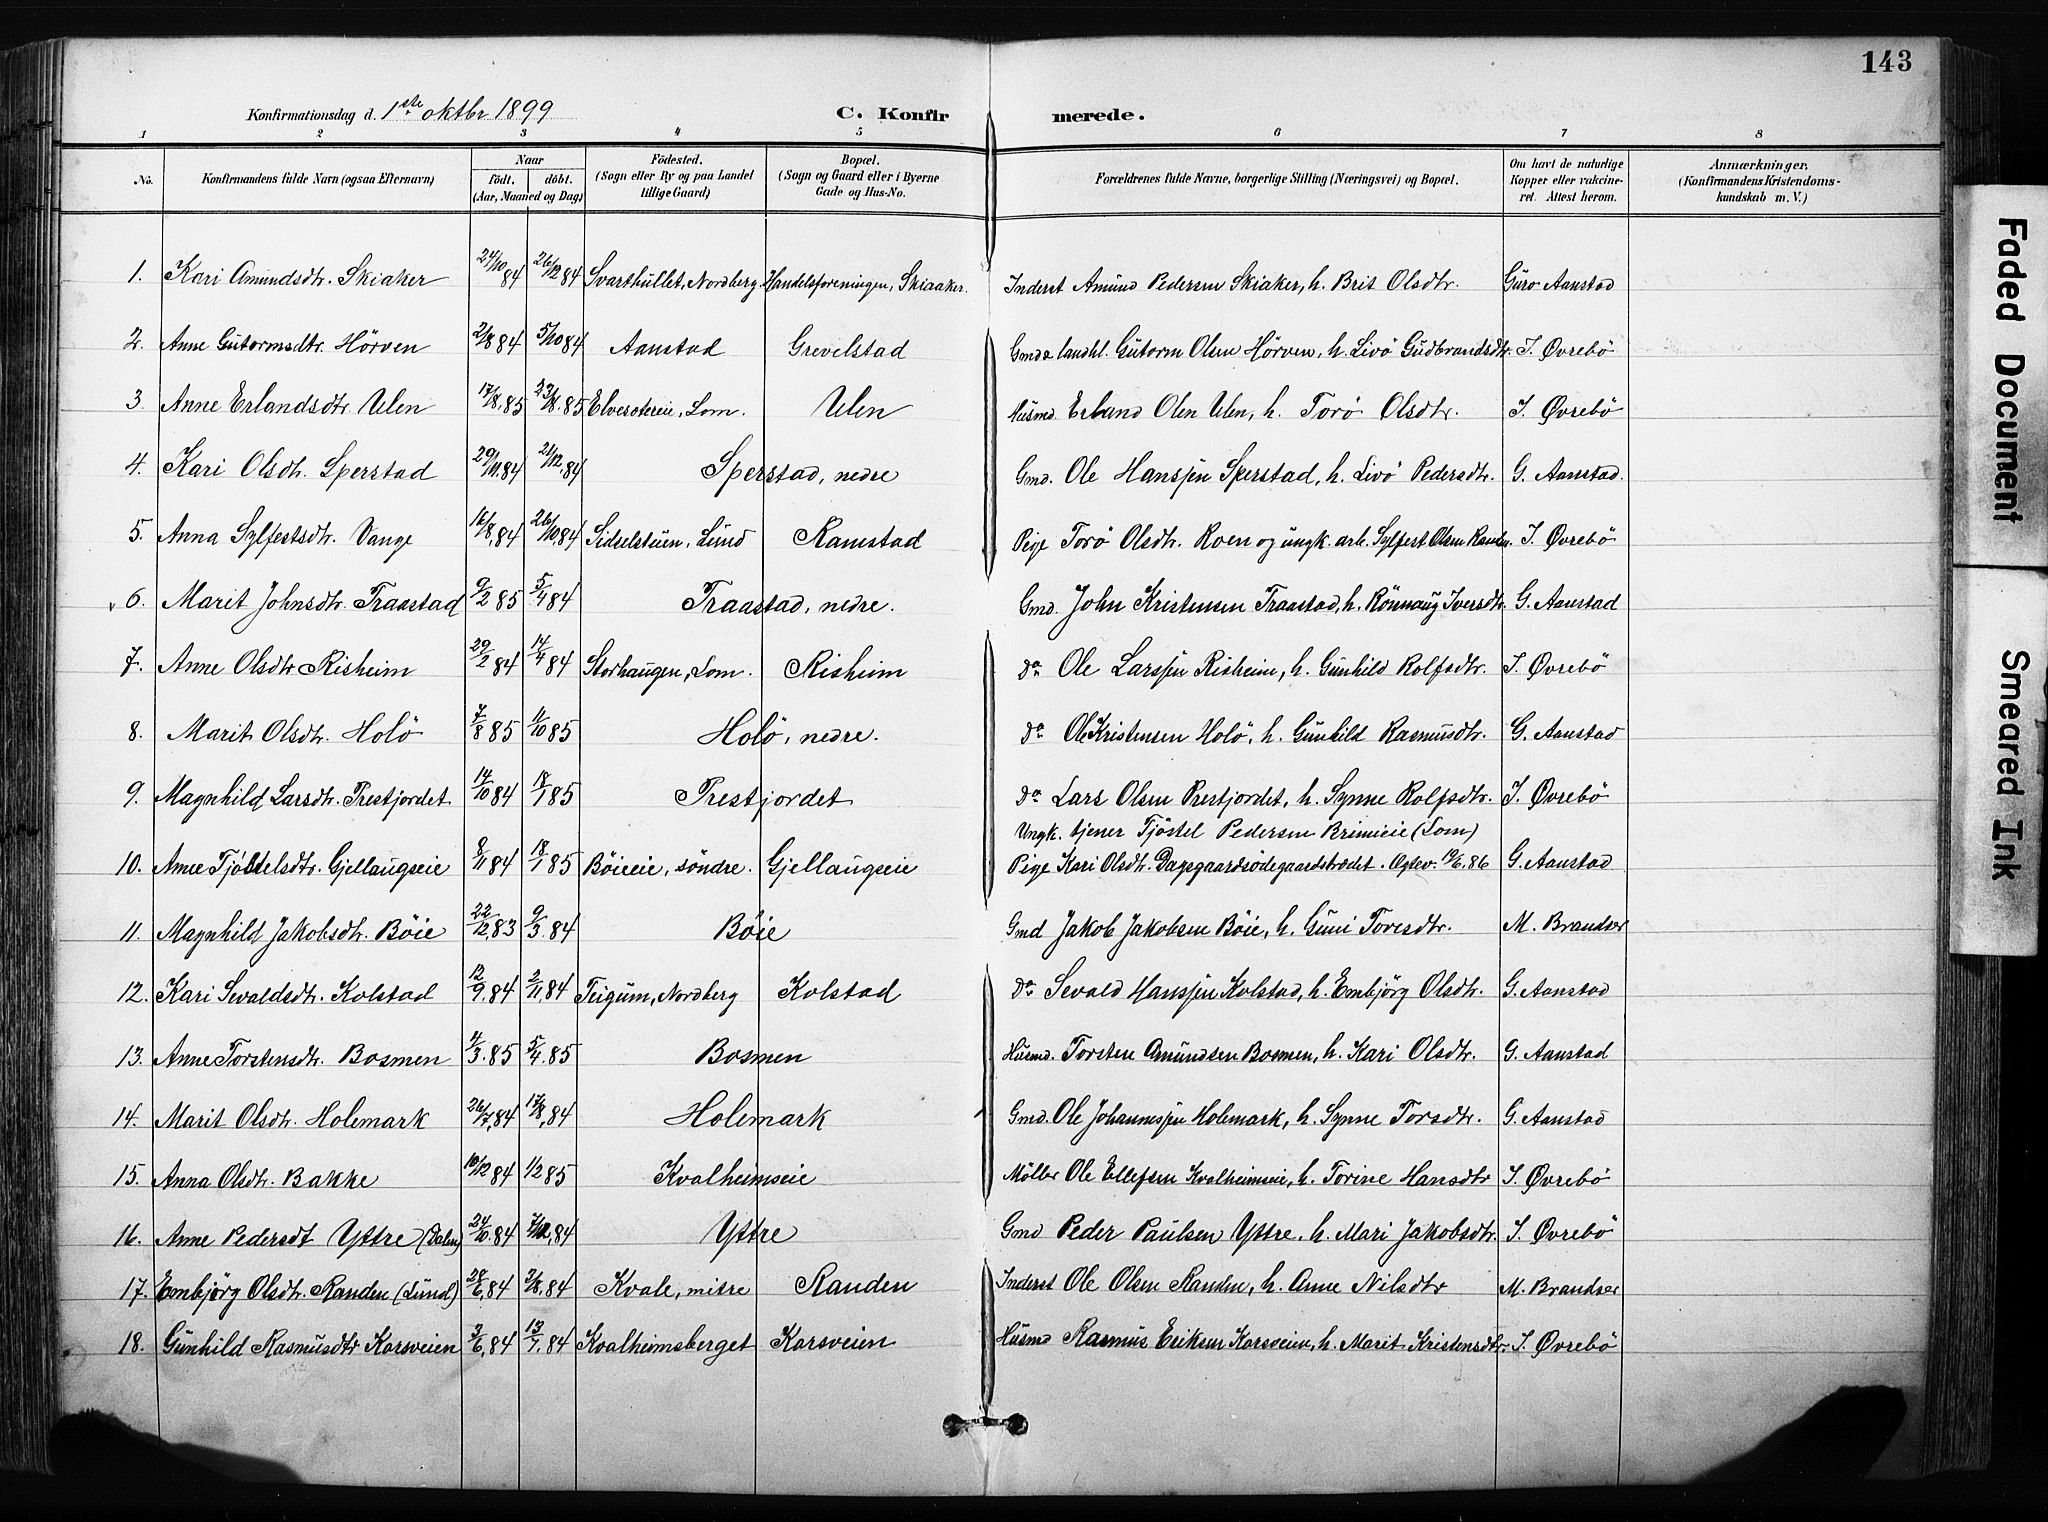 143
Konfirmationsdag d. 1ste oktbr 1899 C. Konfirmerede.
1 2 3 4 5 6 7 8
No. Konfirmandens fulde Navn (ogsaa Efternavn) Naar födt. döbt. (Aar, Maaned og Dag) Födested. (Sogn eller By og paa Landet tillige Gaard) Bopæl. (Sogn og Gaard eller i Byerne Gade og Hus-No. Forældrenes fulde Navne, borgerlige Stilling (Næringsvei) og Bopæl. Om havt de naturlige Kopper eller vakcineret. Attest herom. Anmærkninger. (Konfirmandens Kristendomskundskab m. V.)
1. Kari Amundsdtr. Skiaker 24/10 84 26/12 84 Svarthullet, Nordberg. Handelsforeningen, Skiaaker. Inderst Amund Pedersen Skiaker, h. Brit Olsdtr. Guro Aanstad
2. Anne Gutormsdtr. Hörven 2/8 84 5/10 84 Aanstad Grevelstad Gmd & landhl. Gutorm Olsen Hörven, h. Livö Gudbrandsdtr. I. Øvrebö
3. Anne Erlandsdtr. Ulen 17/8. 85 23/8. 85 Elvesætereie, Lom. Ulen Husmd. Erland Olsen Ulen, h. Torö Olsdtr. I. Øvrebö
4. Kari Olsdtr. Sperstad 29/11. 84 21/12. 84 Sperstad, nedre Gmd. Ole Hansjen Sperstad, h. Livö Pedersdtr. G. Aanstad.
5. Anna Sylfestsdtr. Vange 16/8. 84 26/10. 84 Sidselstuen, Lund Ramstad Pige Torö Olsdtr. Roen og ungk. arb. Sylfest Olsen Randen. I. Øvrebö
6. Marit Johnsdtr. Traastad 9/2 85 5/4 84 Traastad, nedre. Gmd. John Kristensen Traastad, h. Rönnaug Iversdtr. G. Aanstad
7. Anne Olsdtr. Risheim 29/2 84 14/4 84 Storhaugen, Lom. Risheim Do Ole Larsjen Risheim, h. Gunhild Rolfsdtr. I. Øvrebö
8. Marit Olsdtr. Holö 7/8 85 11/10 85 Holö, nedre. Do Ole Kristensen Holö, h. Gunhild Rasmusdtr. G. Aanstad
9. Magnhild Larsdtr. Prestjordet 14/10 84 18/1 85 Prestjordet Do Lars Olsen Prestjordet, h. Synne Rolfsdtr. I. Øvrebö
Ungk. tjener Tjöstel Pedersen Brimieie (Lom)
10. Anne Tjöstelsdtr. Gjellaugseie 8/11 84 18/1 85 Böieeie, söndre. Gjellaugseie Pige Kari Olsdtr. Dagsgaardsödegaardstrædet. Oplev. 19/6. 86 G. Aanstad
11. Magnhild Jakobsdtr. Böie 22/12. 83 9/3. 84 Böie Gmd Jakob Jakobsen Böie, h. Guni Toresdtr. M. Brandser
12. Kari Sevaldsdtr. Kolstad 12/9. 84 2/11. 84 Teigum, Nordberg Kolstad Do Sevald Hansjen Kolstad, h. Embjörg Olsdtr. G. Aanstad
13. Anne Torstensdtr. Bosmen 11/3. 85 5/4. 85 Bosmen Husmd. Torsten Amundsen Bosmen, h. Kari Olsdtr. G. Aanstad
14. Marit Olsdtr. Holemark 26/7. 84 17/8. 84 Holemark Gmd. Ole Johannesjen Holemark, h. Synne Torsdtr. G. Aanstad
15. Anna Olsdtr. Bakke 10/12 84 1/2 85 Kvalheimseie Möller Ole Ellefsen Kvalheimseie, h. Torine Hansdtr I. Øvrebö
16. Anne Pedersdt Yttre (Dalen) 24/10. 84 7/12. 84 Yttre Gmd Peder Paulsen Yttre, h. Mari Jakobsdtr. I. Øvrebö
17. Embjörg Olsdtr. Randen (Lund) 28/6. 84 3/8. 84 Kvale, mitre Randen Inderst Ole Olsen Randen, h. Anne Nilsdtr M. Brandser
18. Gunhild Rasmusdtr Korsveien 3/6. 84 13/7. 84 Kvalheimsberget Korsveien Husmd Rasmus Eriksen Korsveien, h. Marit Kristensdtr. I. Øvrebö
Faded Document
Smeared Ink